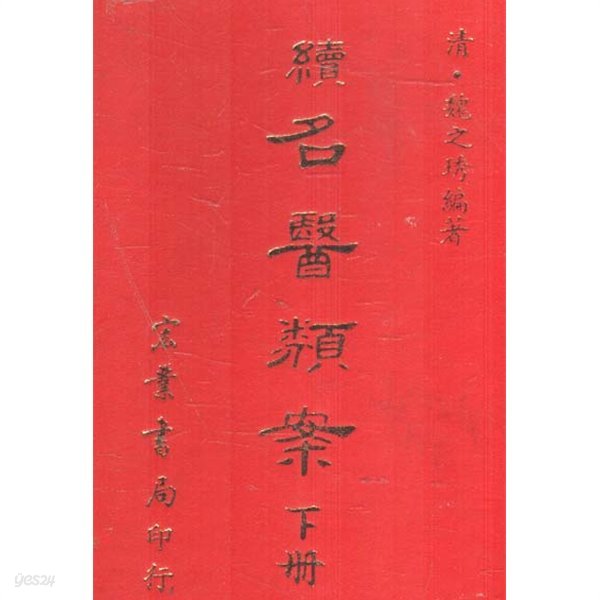 清・魏之琇編著
續名醫類案下册
宏業書局印行
yes24